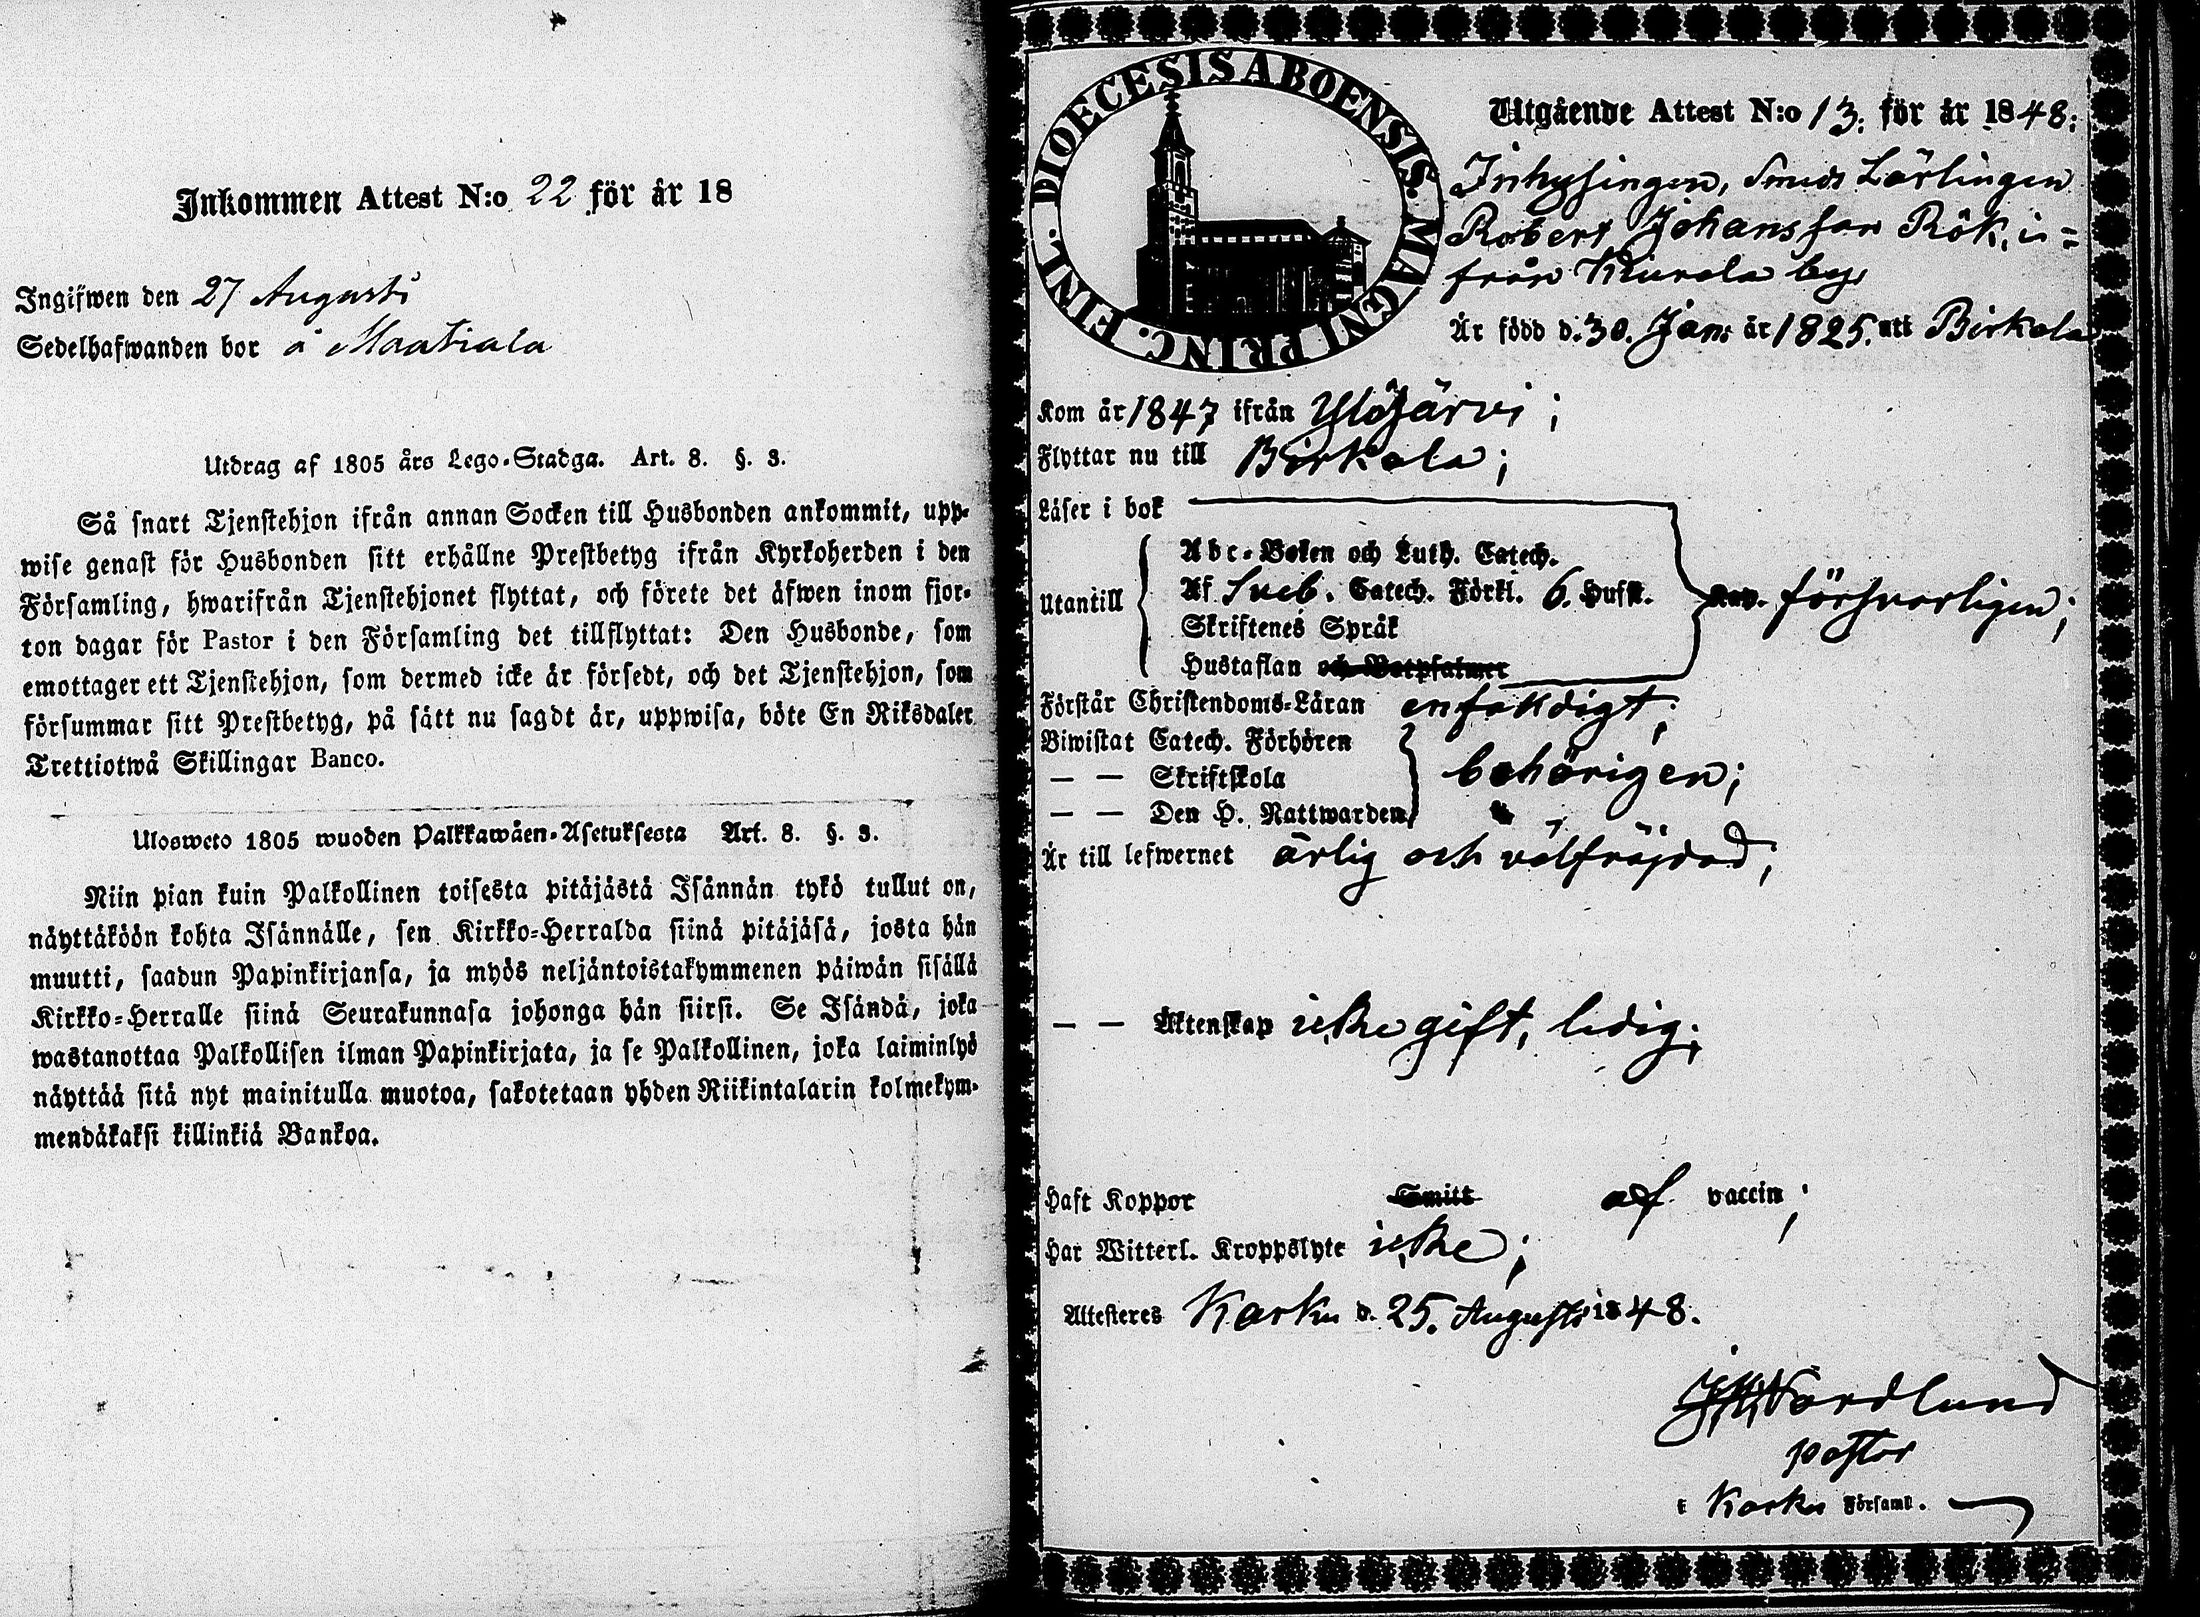 Inkommen Attest N:o 22 för år 18
Ingifwen den 27 Augusti
Sedelhafwanden bor å Maatiala
Utdrag af 1805 års Lego-Stadga. Art. 8. §. 3.
Så snart Tjenstehjon ifrån annan Socken till Husbonden ankommit, upp-
wise genast för Husbonden sitt erhållne Prestbetyg ifrån Kyrkoherden i den
Församling, hwarifrån Tjenstehjonet flyttat, och förete det äfwen inom fjor-
ton dagar för Pastor i den Församling det tillflyttat: Den Husbonde, som
emottager ett Tjenstehjon, som dermed icke är försedt, och det Tjenstehjon, som
försummar sitt Prestbetyg, på sätt nu sagdt är, uppwisa, böte En Riksdaler
Trettiotwå Skillingar Banco.
Ulosweto 1805 wuoden Palkkawäen-Asetuksesta Art. 8. §. 3.
Niin pian kuin Palkollinen toisesta pitäjästä Isännän tykö tullut on,
näyttäköön kohta Isännälle, sen Kirkko-Herralda siinä pitäjäsä, josta hän
muutti, saadun Papinkirjansa, ja myös neljäntoistakymmenen päiwän sisällä
Kirkko-Herralle siinä Seurakunnasa johonga hän siirsi. Se Isändä, joka
wastanottaa Palkollisen ilman Papinkirjata, ja se Palkollinen, joka laiminlyö
näyttää sitä nyt mainitulla muotoa, sakotetaan yhden Riikintalarin kolmekym-
mendäkaksi killinkiä Bankoa.
DIOECESIS ABOENSIS. MAGNI PRINC. FINL.
Utgående Attest N:o 13. för år 1848:
Inhysingen, Smeds Lärlingen
Robert Johansson Rök, i=
från Kiurala by,
Är född d. 30. Jan: år 1825. uti Birkala
Kom år 1847 ifrån Ylöjärvi;
Flyttar nu till Birkala;
Läser i bok
Utantill
Abc-Boken och Luth. Catech.
Af Sveb. Catech. Förkl. 6. Hufst.
Skriftenes Språk
Hustaflan och Botpsalmer
försvarligen;
Förstår Christendoms-Läran enfaldigt;
Biwistat Catech. Förhören
— — Skriftskola behörigen;
— — Den H. Nattwarden
Är till lefwernet ärlig och välfräjdad;
— — Äktenskap icke gift, ledig;
Haft Koppor Smitt af vaccin;
Har Witterl. Kroppslyte icke;
Attesteres Karku d. 25. Augusti 1848.
Nordlund
pastor
i Karku Församl.